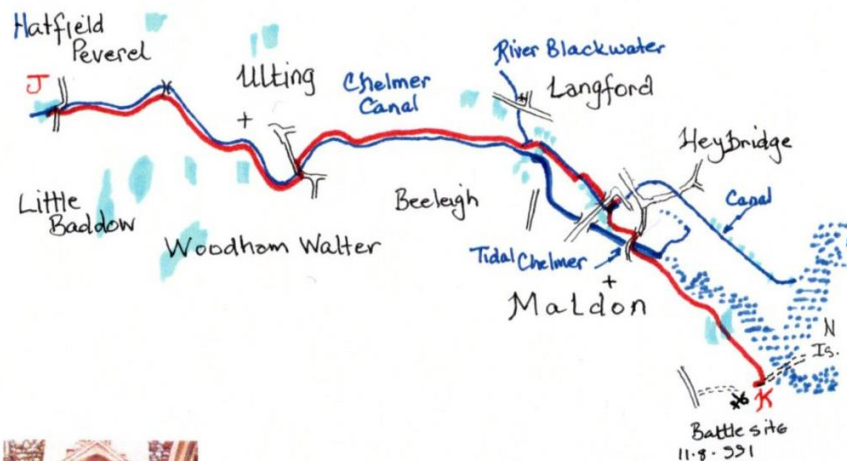 Hatfield
Peverel
J
Ulting
Chelmer
Canal
River Blackwater
Langford
Heybridge
Canal
Little
Baddow
Woodham Walter
Beeleigh
Tidal Chelmer
Maldon
N
Is.
K
Battle site
11.8.991